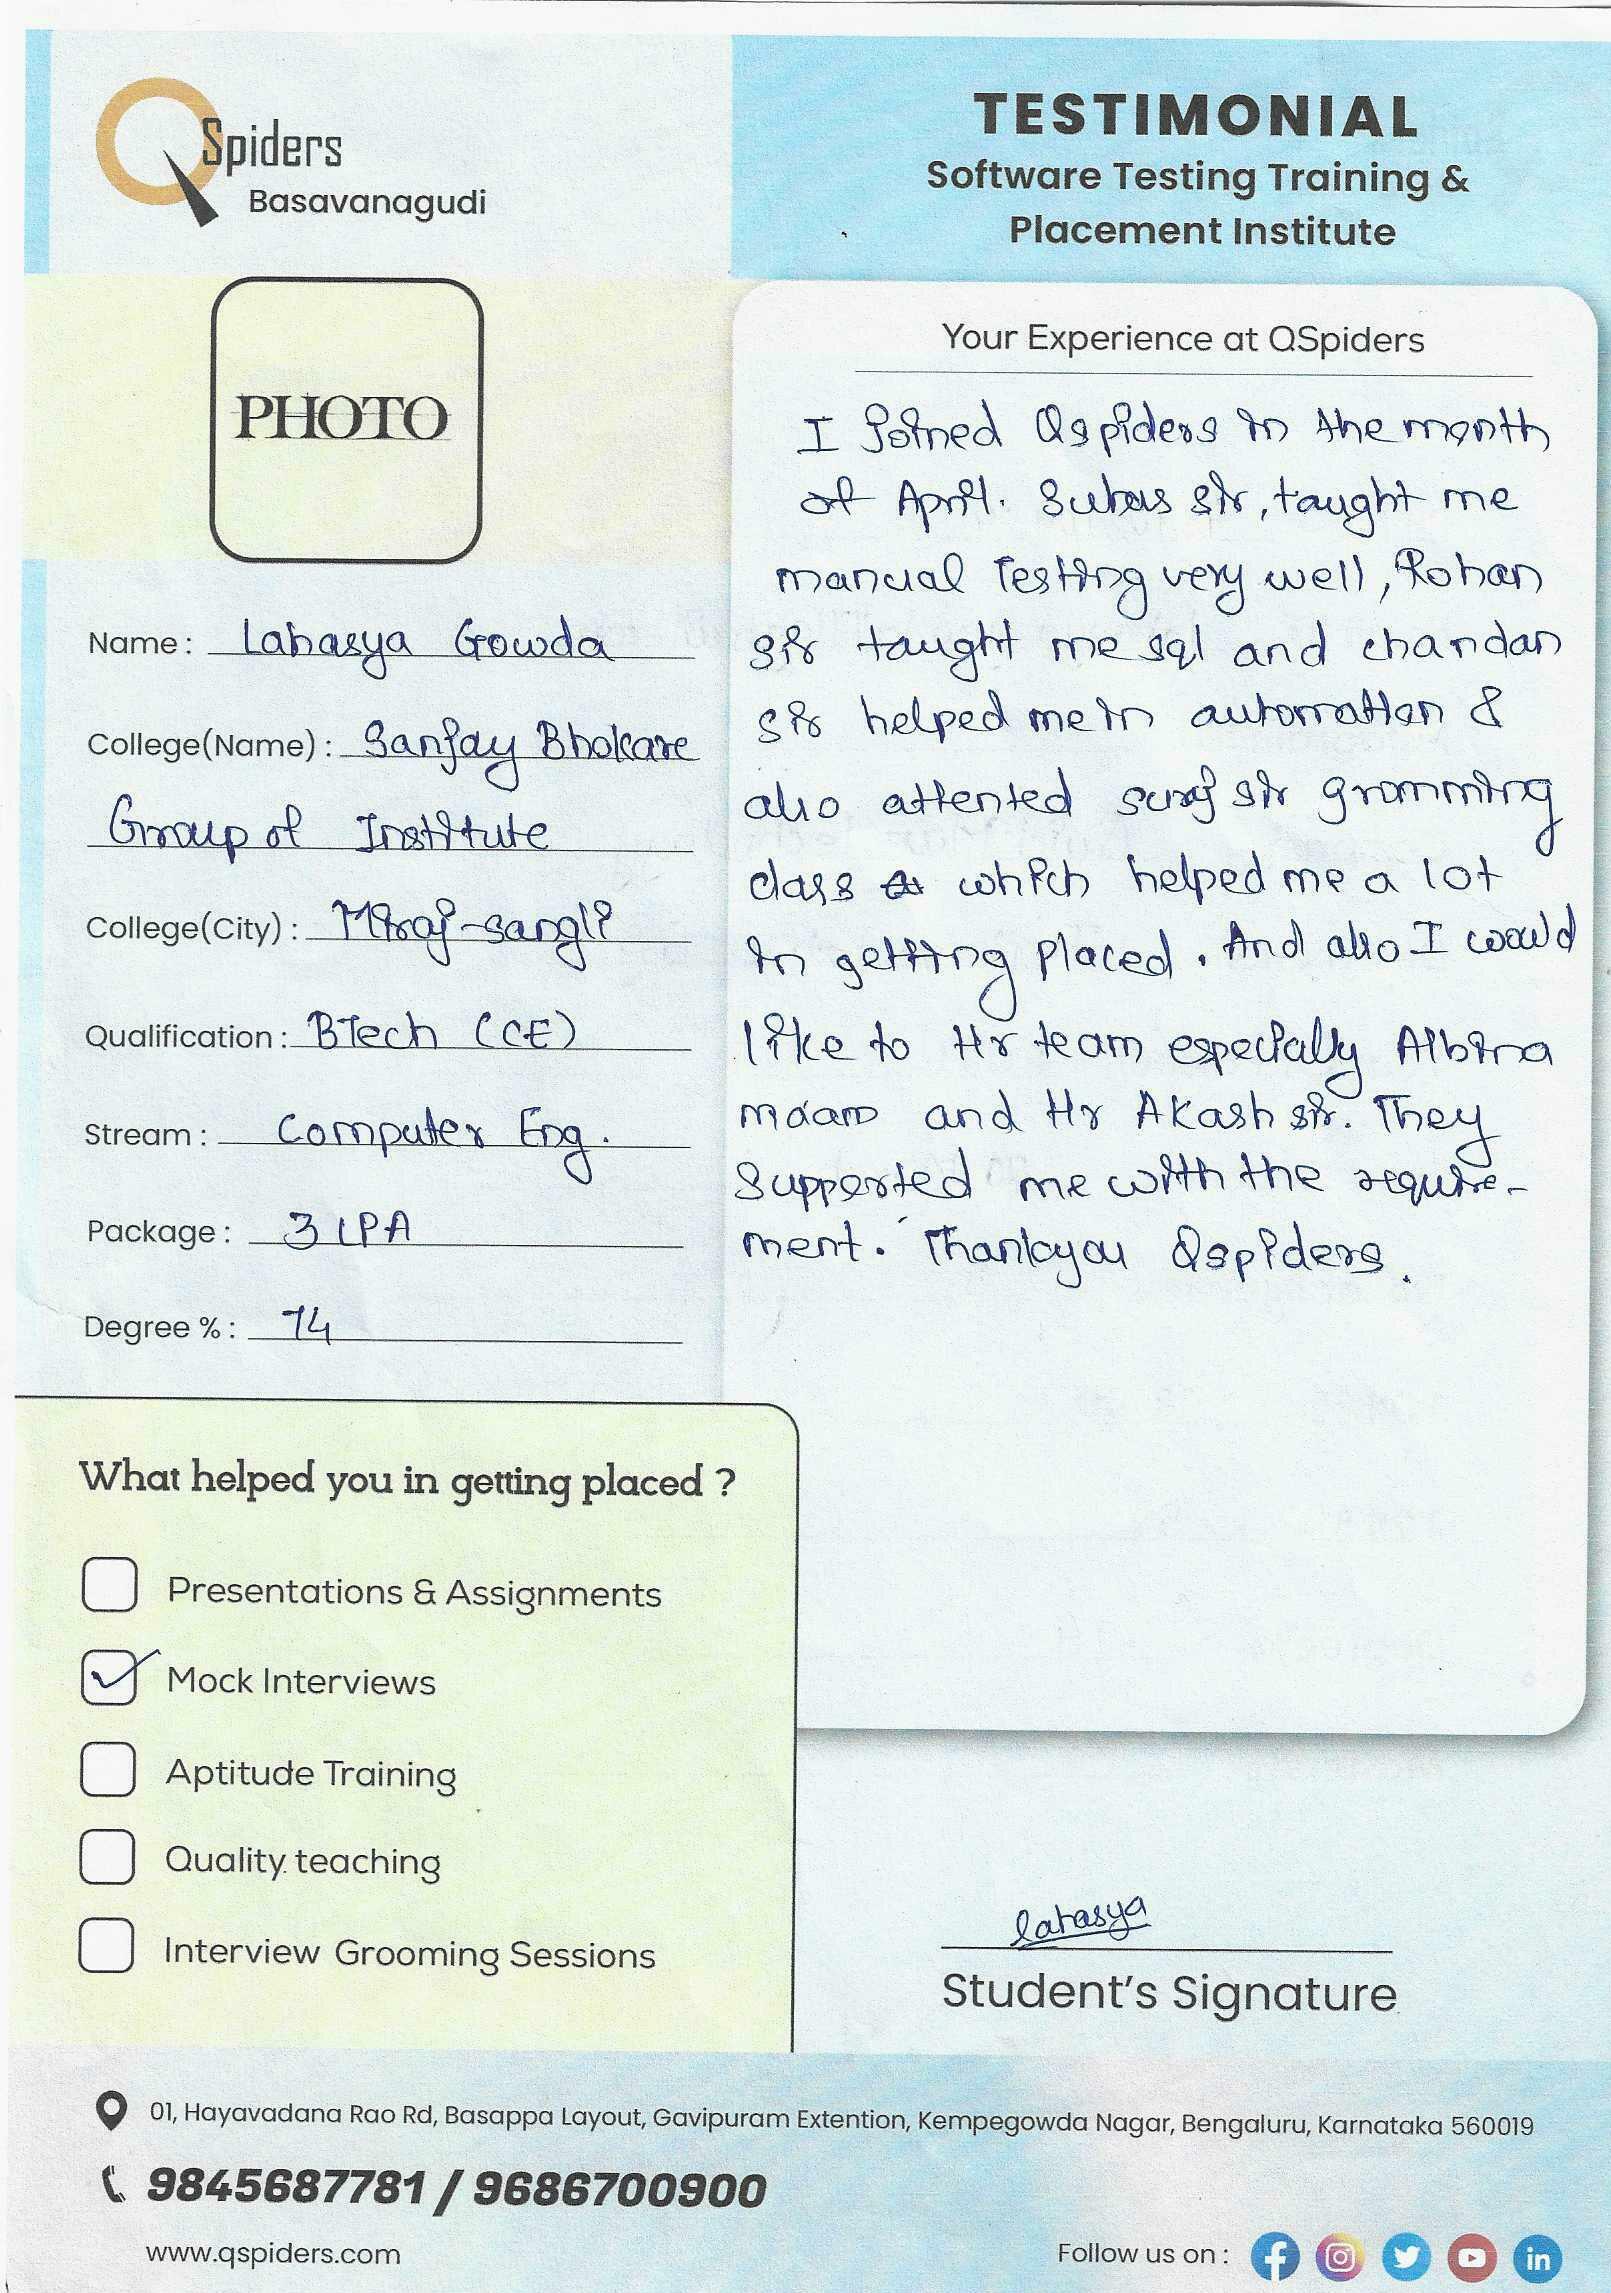 QSpiders
Basavanagudi
TESTIMONIAL
Software Testing Training &
Placement Institute
PHOTO
Name : Lahasya Gowda
College(Name) : Sanjay Bhokare
Group of Institute
College(City) : Miraj-sangli
Qualification : BTech (CE)
Stream : Computer Eng.
Package : 3 LPA
Degree % : 74
Your Experience at QSpiders
I joined Qspiders in the month
of April. Subas sir, taught me
manual Testing very well, Rohan
sir taught me sql and chandan
sir helped me in automation &
also attented suraj sir gromming
class which helped me a lot
in getting placed. And also I would
like to Hr team especially Albina
maam and Hr Akash sir. They
supported me with the require-
ment. Thankyou Qspiders.
What helped you in getting placed ?
Presentations & Assignments
Mock Interviews
Aptitude Training
Quality teaching
Interview Grooming Sessions
lahasya
Student's Signature
01, Hayavadana Rao Rd, Basappa Layout, Gavipuram Extention, Kempegowda Nagar, Bengaluru, Karnataka 560019
9845687781 / 9686700900
www.qspiders.com
Follow us on :